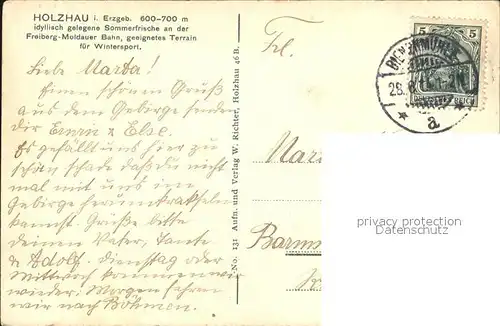 HOLZHAU i. Erzgeb. 600-700 m
idyllisch gelegene Sommerfrische an der
Freiberg-Moldauer Bahn, geeignetes Terrain
für Wintersport.
Liebe Marta!
Einen schönen Gruß
aus dem Gebirge senden
dir Erna & Else.
Es gefällt uns hier zu
schön schade daß du nicht
mal mit uns im
Gebirge herumkrakseln
kannst. Grüße bitte
deinen Vater, Tante
& Adolf. Dienstag oder
Mittwoch kommen wir
wieder. Morgen fahren
wir nach Böhmen.
No. 131 Aufn. und Verlag W. Richter, Holzhau 46 B.
Frl.
5 5
DEUTSCHES REICH
BIENENMÜHLE
28.
* a *
Mar
Barm
privacy protection
akpool.co.uk